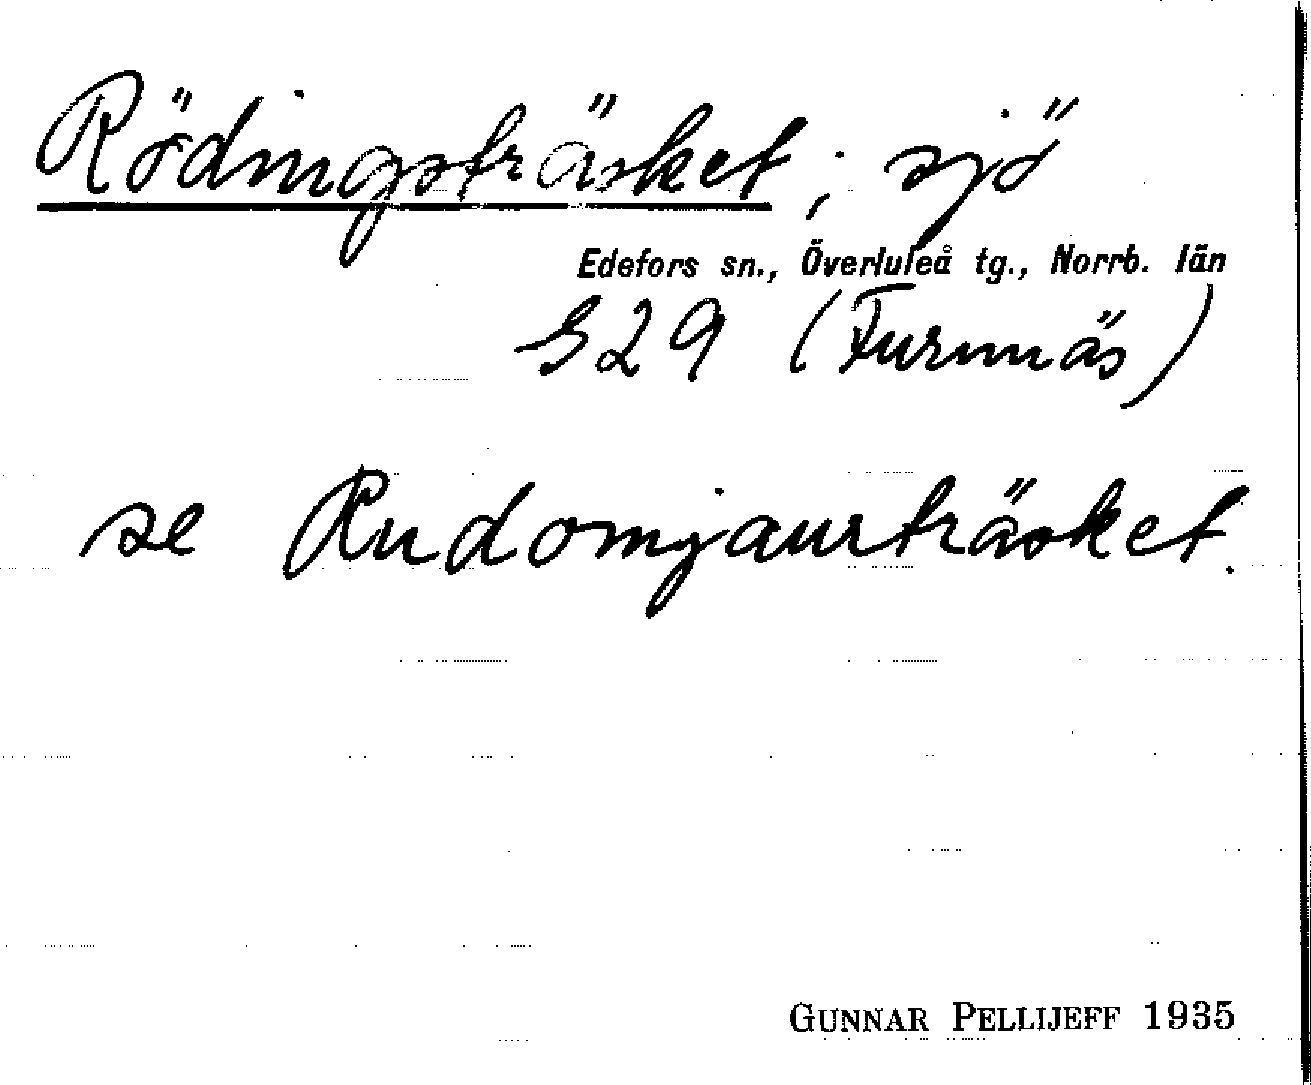 Rödingsträsket, sjö
Edefors sn., Överluleå tg., Norrb. län
S29 (Furunäs)
se Rudomjaurträsket.
GUNNAR PELLIJEFF 1935